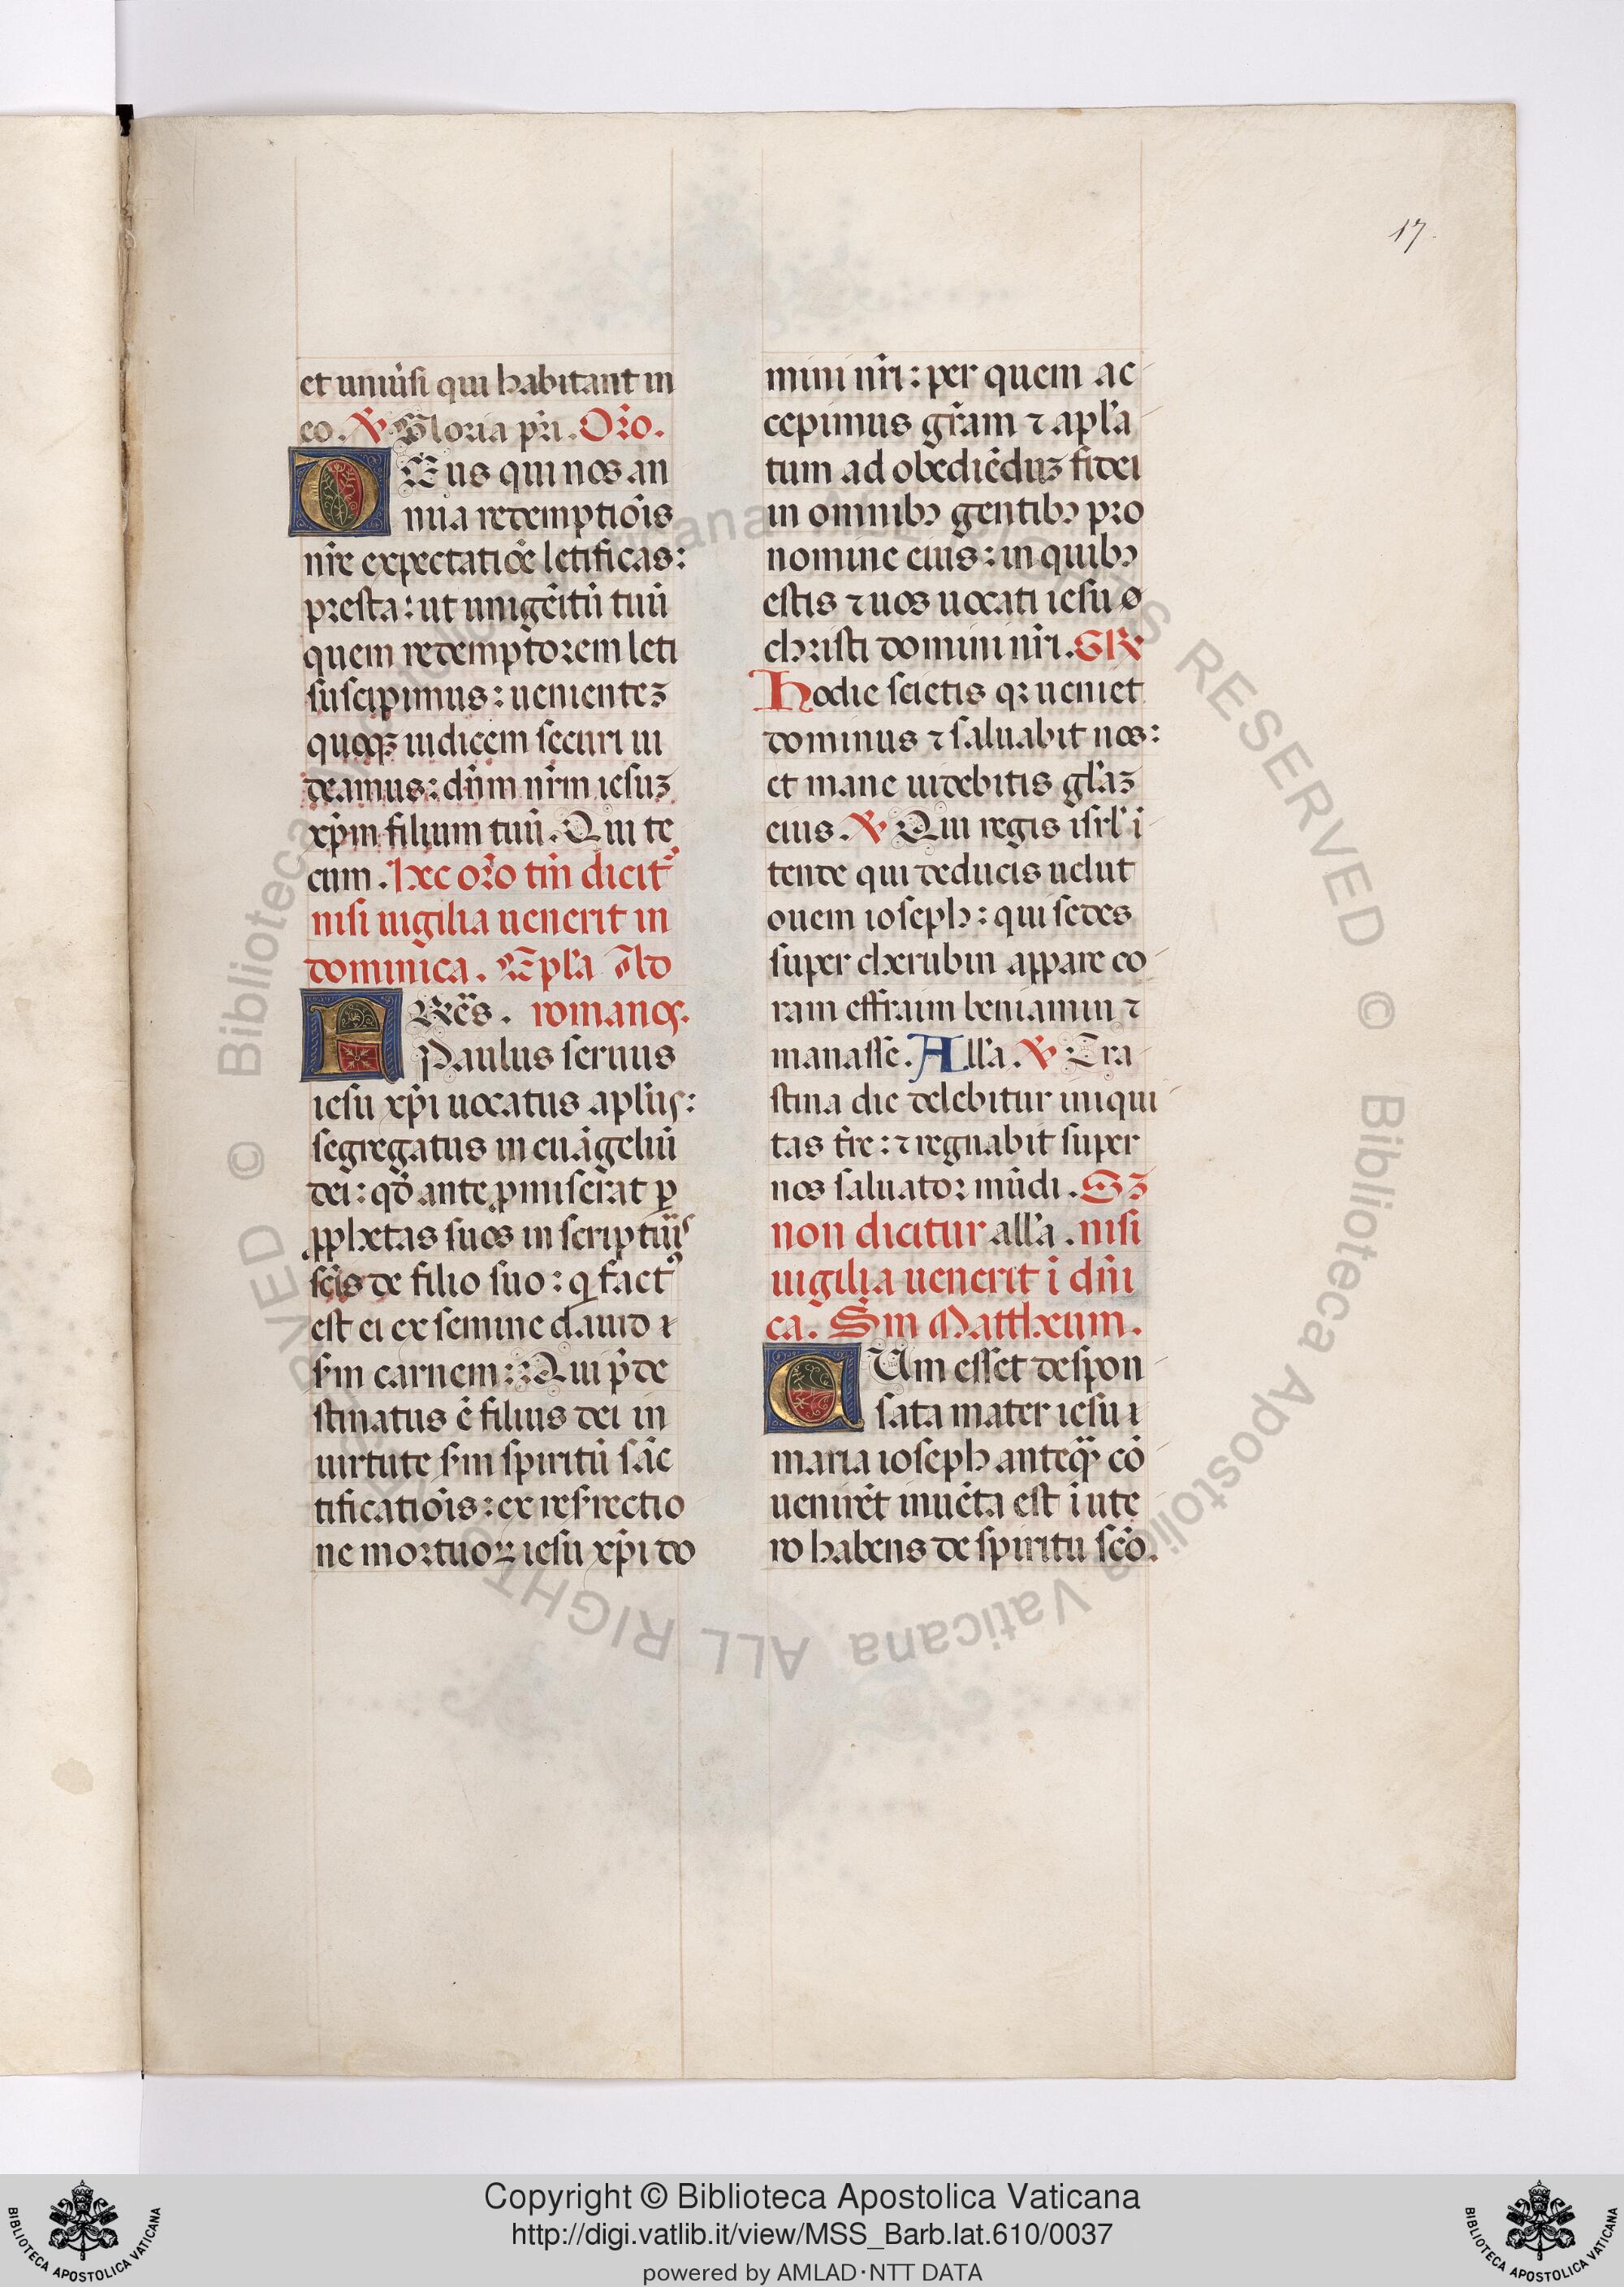 17.
et uniũsi qui habitant in
eo. ℣ Gloria pr̃i. Or̃o.
DEus qui nos an
nua redemptiõis
nr̃e expectatiõe letificas:
presta: ut unigẽitũ tuũ
quem redemptorem leti
suscipimus: uenienteʒ
quoqʒ iudicem securi ui
deamus: dñm nr̃m iesuʒ
xp̃m filium tuũ. Qui te
cum. Hec or̃o tm̃ dicit᷑
nisi uigilia uenerit in
dominica. Epl̃a
FRẽs. romanoꝝ.
Paulus seruus
iesu xp̃i uocatus apl̃us:
segregatus in euãgeliũ
dei: qđ ante ꝓmiserat ꝑ
ꝓphetas suos in scripturis
sc̃is de filio suo: q fact᷒
est ei ex semine dauid
sm̃ carnem: Qui p̃de
stinatus ẽ filius dei in
uirtute sm̃ spiritũ sãc
tificatiõis: ex resr̃rectio
ne mortuoꝝ iesu xp̃i do
mini nr̃i: per quem ac
cepimus gr̃am ⁊ apl̃a
tum ad obediẽduʒ fidei
in omnibꝫ gentibꝫ pro
nomine eius: in quibꝫ
estis ⁊ uos uocati iesu
christi domini nr̃i. GR̃
Hodie scietis qꝛ ueniet
dominus ⁊ saluabit nos:
et mane uidebitis gl̃aʒ
eius. ℣ Qui regis isrl̃ ĩ
tende qui deducis uelut
ouem ioseph: qui sedes
super cherubin appare co
ram effraim beniamin ⁊
manasse. All̃a. ℣ Cra
stina die delebitur iniqui
tas tr̃e: ⁊ regnabit super
nos saluator mũdi. Sʒ
non dicitur all̃a. nisi
uigilia uenerit ĩ dñi
ca. Sm̃ Mattheum.
CUm esset despon
sata mater iesu
maria ioseph anteq̃ȝ cõ
uenirẽt inuẽta est ĩ ute
ro habens de spiritu sc̃o.
Copyright © Biblioteca Apostolica Vaticana
http://digi.vatlib.it/view/MSS_Barb.lat.610/0037
powered by AMLAD·NTT DATA
BIBLIOTECA APOSTOLICA VATICANA
BIBLIOTECA APOSTOLICA VATICANA
© Biblioteca Apostolica Vaticana ALL RIGHTS RESERVED © Biblioteca Apostolica Vaticana ALL RIGHTS RESERVED